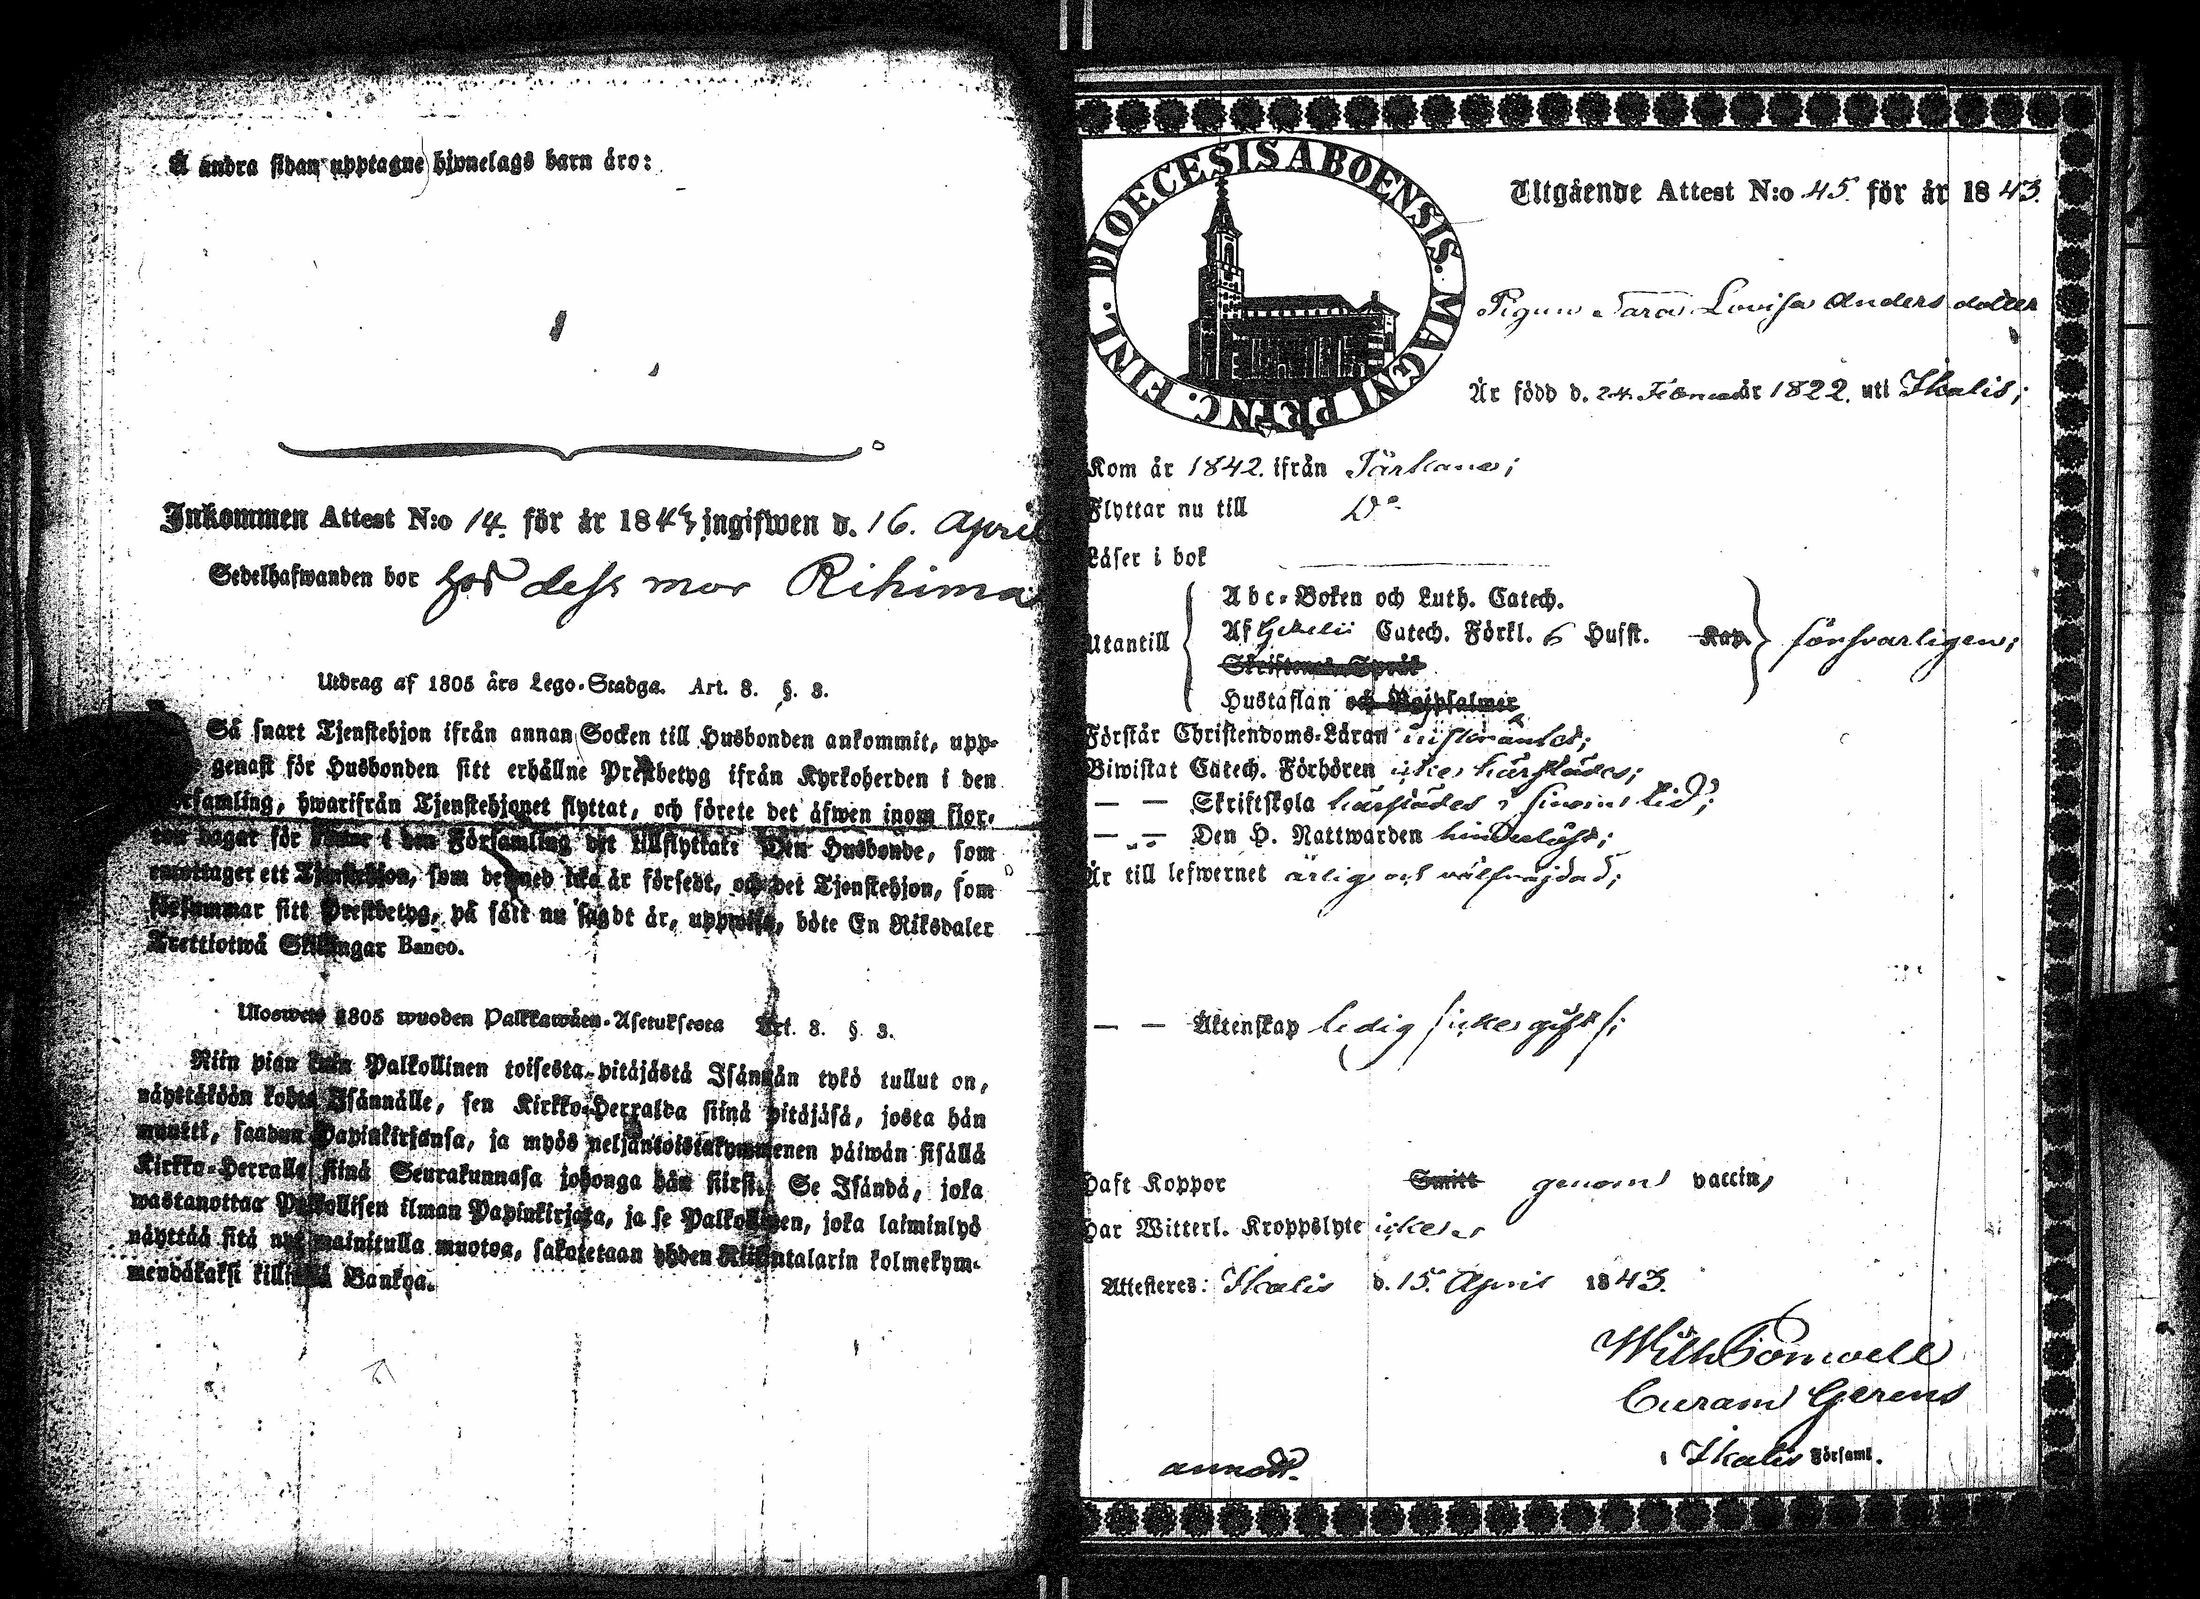 Å andra sidan upptagne hjonelags barn äro:
Inkommen Attest N:o 14. för år 1843 ingifwen d. 16. April
Sedelhafwanden bor hos dess mor Rihima
Utdrag af 1805 års Lego-Stadga. Art. 8. §. 3.
Så snart Tjenstehjon ifrån annan Socken till Husbonden ankommit, upp-
genast för Husbonden sitt erhållne Prestbetyg ifrån Kyrkoherden i den
Församling, hwarifrån Tjenstehjonet flyttat, och förete det äfwen inom fjor-
ton dagar för i den Församling det tillflyttat: Den Husbonde, som
emottager ett Tjenstehjon, som dermed icke är försedt, och det Tjenstehjon, som
försummar sitt Prestbetyg, på sätt nu sagdt är, uppwisa, böte En Riksdaler
Trettiotwå Skillingar Banco.
Ulosweto 1805 wuoden Palkkawäen-Asetuksesta Art. 8. §. 3.
Niin pian kuin Palkollinen toisesta pitäjästä Isännän tykö tullut on,
näyttäköön kohta Isännälle, sen Kirkko-Herralda siinä pitäjäsä, josta hän
muutti, saadun Papinkirjansa, ja myös neljäntoistakymmenen päiwän sisällä
Kirkko-Herralle siinä Seurakunnasa johonga hän siirsi. Se Isändä, joka
wastanottaa Palkollisen ilman Papinkirjata, ja se Palkollinen, joka laiminlyö
näyttää sitä nyt mainitulla muotoa, sakotetaan yhden Riikintalarin kolmekym-
mendäkaksi killingiä Bankoa.
DIOECESIS ABOENSIS. MAGNI PRINC. FINL.
Utgående Attest N:o 45. för år 1843.
Pigan Sara Lovisa Anders dotter
Är född d. 24. Februari år 1822. uti Ikalis;
Kom år 1842. ifrån Tärkanes;
Flyttar nu till Do
Läser i bok
Abc-Boken och Luth. Catech.
Utantill Af Gezelii Catech. Förkl. 6 Hufst. Kap. försvarligen;
Skriftenes Språk
Hustaflan och Botpsalmer
Förstår Christendoms-Läran inskränket;
Biwistat Catech. Förhören icke härstädes;
— — Skriftskola härstädes i sinom tid;
— „ — Den H. Nattwarden hinderlöst;
Är till lefwernet ärlig och välfrejdad;
— — Äktenskap ledig /: icke gift :/;
Haft Koppor Smitt genom vaccin,
Har Witterl. Kroppslyte icke
Attesteres: Ikalis d. 15. April 1843.
Curam Gerens
i Ikalis Församl.
annot.